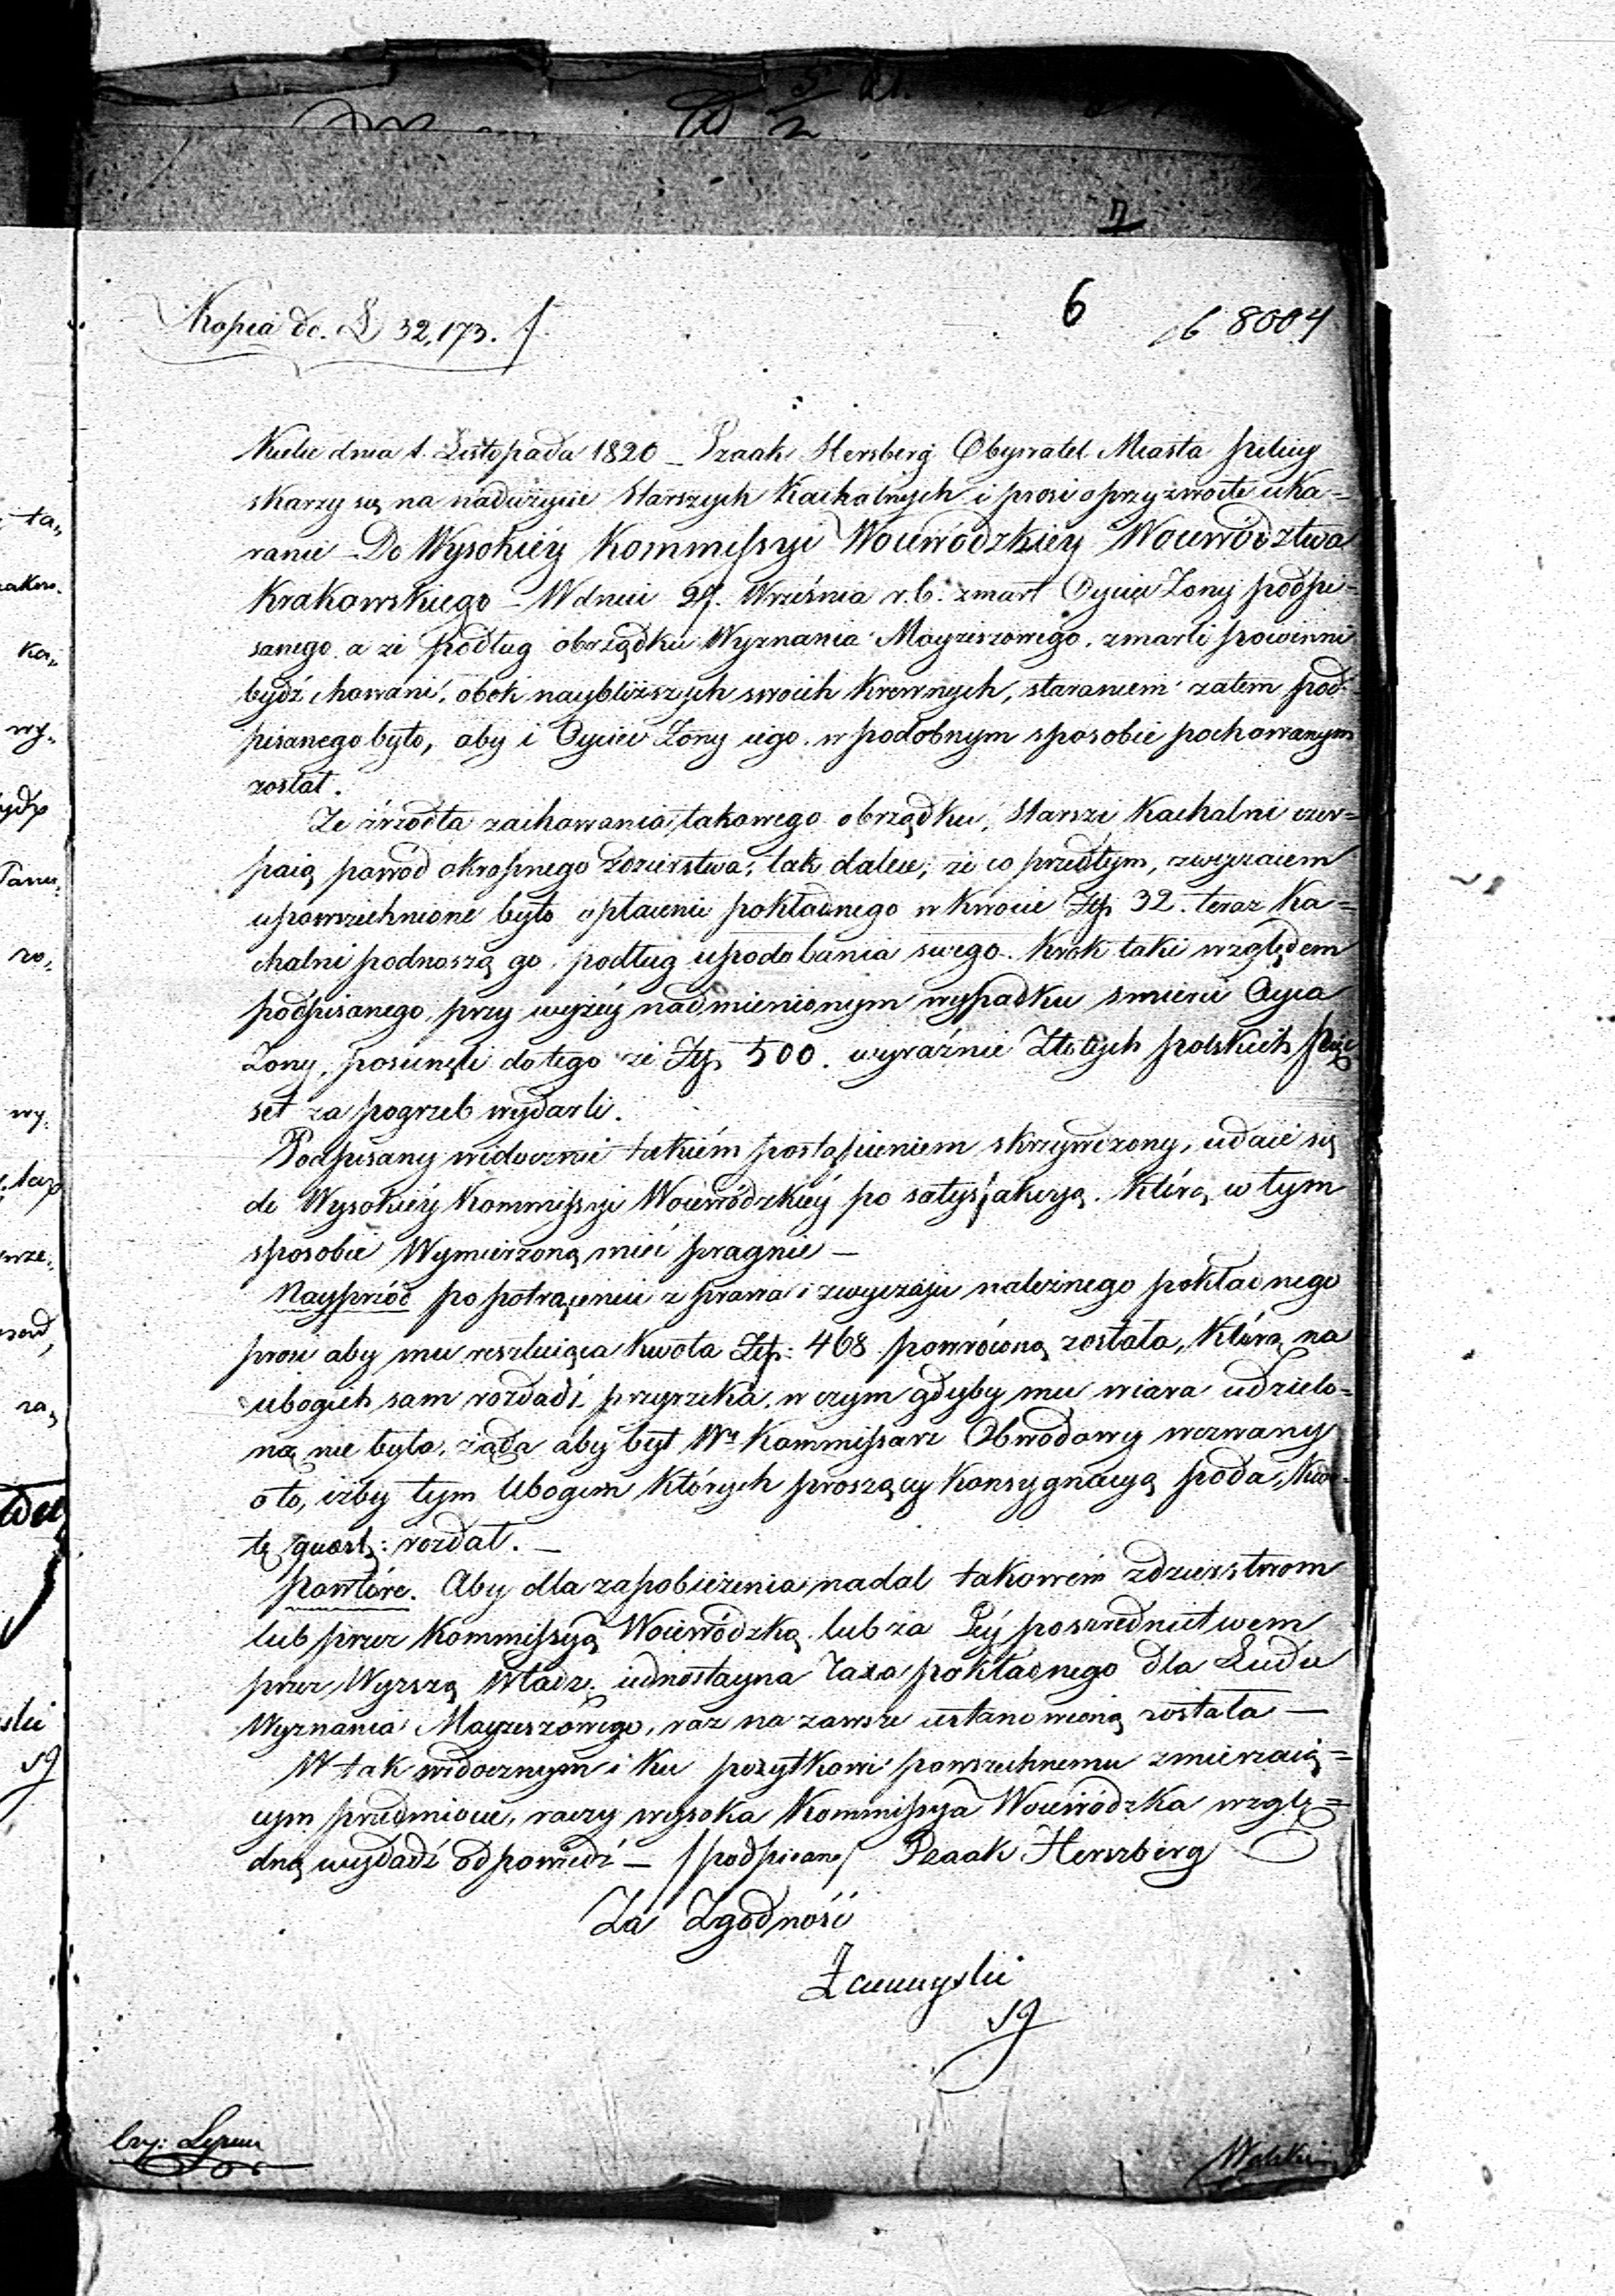 7
6
8004
Kopia do. L 32,173.
Kielce dnia 1. Listopada 1820 _ Izaak Herszberg Obywatel Miasta Pilicy
skarzy się na nadużycie Starszych Kachalnych i prosi o przyzwoite uka=
ranie _ Do Wysokiéy Kommissyi Woiewódzkiéy Woiewództwa
Krakowskiego _ W dniu 27. Września r. b. zmarł Oyciec Żony podpi=
sanego a że podług obrządku Wyznania Moyżeszowego zmarli powinni
bydź chowani, obok naybliższych swoich Krewnych, staraniem zatem pod=
pisanego było, aby i Oyciec Żony iego w podobnym sposobie pochowanym
został.
Ze źrzodła zachowania takowego obrządku, Starsi Kachalni czer=
paią powód okropnego zdzierstwa, tak dalece, że co przedtym, zwyczaiem
upowszechnione było opłacenie pokładnego w kwocie Złp. 32. teraz Ka=
chalni podnoszą go podług upodobania swego. Krok taki względem
podpisanego, przy wyżéy nadmienionym wypadku śmierci Oyca
Żony, posunęli do tego że Złp. 500. wyraźnie Złotych polskich pięć
set za pogrzeb wydarli.
Podpisany widocznie takiém postąpieniem skrzywdzony, udaie się
do Wysokiéy Kommissyi Woiewódzkiéy po satysfakcyą. Którą w tym
sposobie Wymierzoną mieć pragnie _
Nayprzód po potrąceniu z prawa i zwyczaju należnego pokładnego
prosi aby mu resztuiąca kwota Złp: 468 powróconą została, Którą na
ubogich sam rozdadź przyrzeka, w czym gdyby mu wiara udzielo=
ną nie była, żąda aby był Wny Kommissarz Obwodowy wezwany
o to, iżby tym Ubogim których proszący Konsygnacyą poda, kwo=
tę quest: rozdał. _
powtóre. Aby dla zapobieżenia nadal takowém zdzierstwom
lub przez Kommissyą Woiewódzką lub za Jéy pośrednictwem
przez Wyższą Władzę iednostayna Taxa pokładnego dla Ludu
Wyznania Moyżeszowego, raz na zawsze ustanowioną została _
W tak widocznym i ku pożytkowi powszechnemu zmierzaią=
cym przedmiocie, raczy wysoka Kommissya Woiewódzka wzglę=
dną wydadź odpowiedź _ /podpisano/ Izaak Herszberg
Za Zgodność